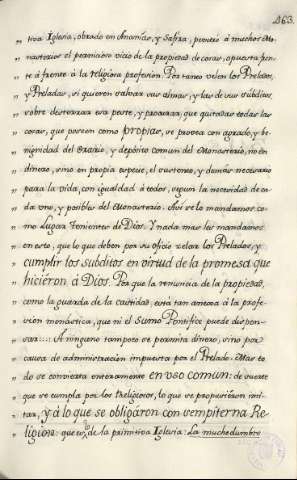 463.
" tiva Iglesia, obrado en Ananías, y Safira, penetró á muchos Mo-
" nasterios el pernicioso vicio de la propiedad de cosas, opuesta fren-
" te á frente á la religiosa profesion. Por tanto velen los Prelados,
" y Preladas, si quieren salvar sus almas, y las de sus subditos,
" sobre desterrar esa peste, y procurar, que quitadas todas las
" cosas, que poseen como propias, se provea con agrado, y be-
" nignidad del Erario, y depósito comun del Monasterio, no en
" dineros, sino en propia especie, el sustento, y demás necesario
" para la vida, con igualdad á todos, segun la necesidad de ca-
" da uno, y posibles del Monasterio. Asi se lo mandamos, co-
" mo Lugar Tenientes de Dios. Y nada mas les mandamos
" en esto, que lo que deben por su oficio zelar los Prelados, y
" cumplir los subditos en virtud de la promesa que
" hiciéron á Dios. Por que la renuncia de la propiedad,
" como la guarda de la castidad, está tan anexa á la profe-
" sion monástica, que ni el Sumo Pontífice puede dispen-
" sar.... A ninguno tampoco se permita dinero, sino por
" causa de administracion impuesta por el Prelado. Mas to-
" do se convierta enteramente en uso comun: de suerte
" que se cumpla por los Religiosos, lo que se propusiéron imi-
" tar, y á lo que se obligáron con sempiterna Re-
" ligion: que es de la primitiva Iglesia: La muchedumbre